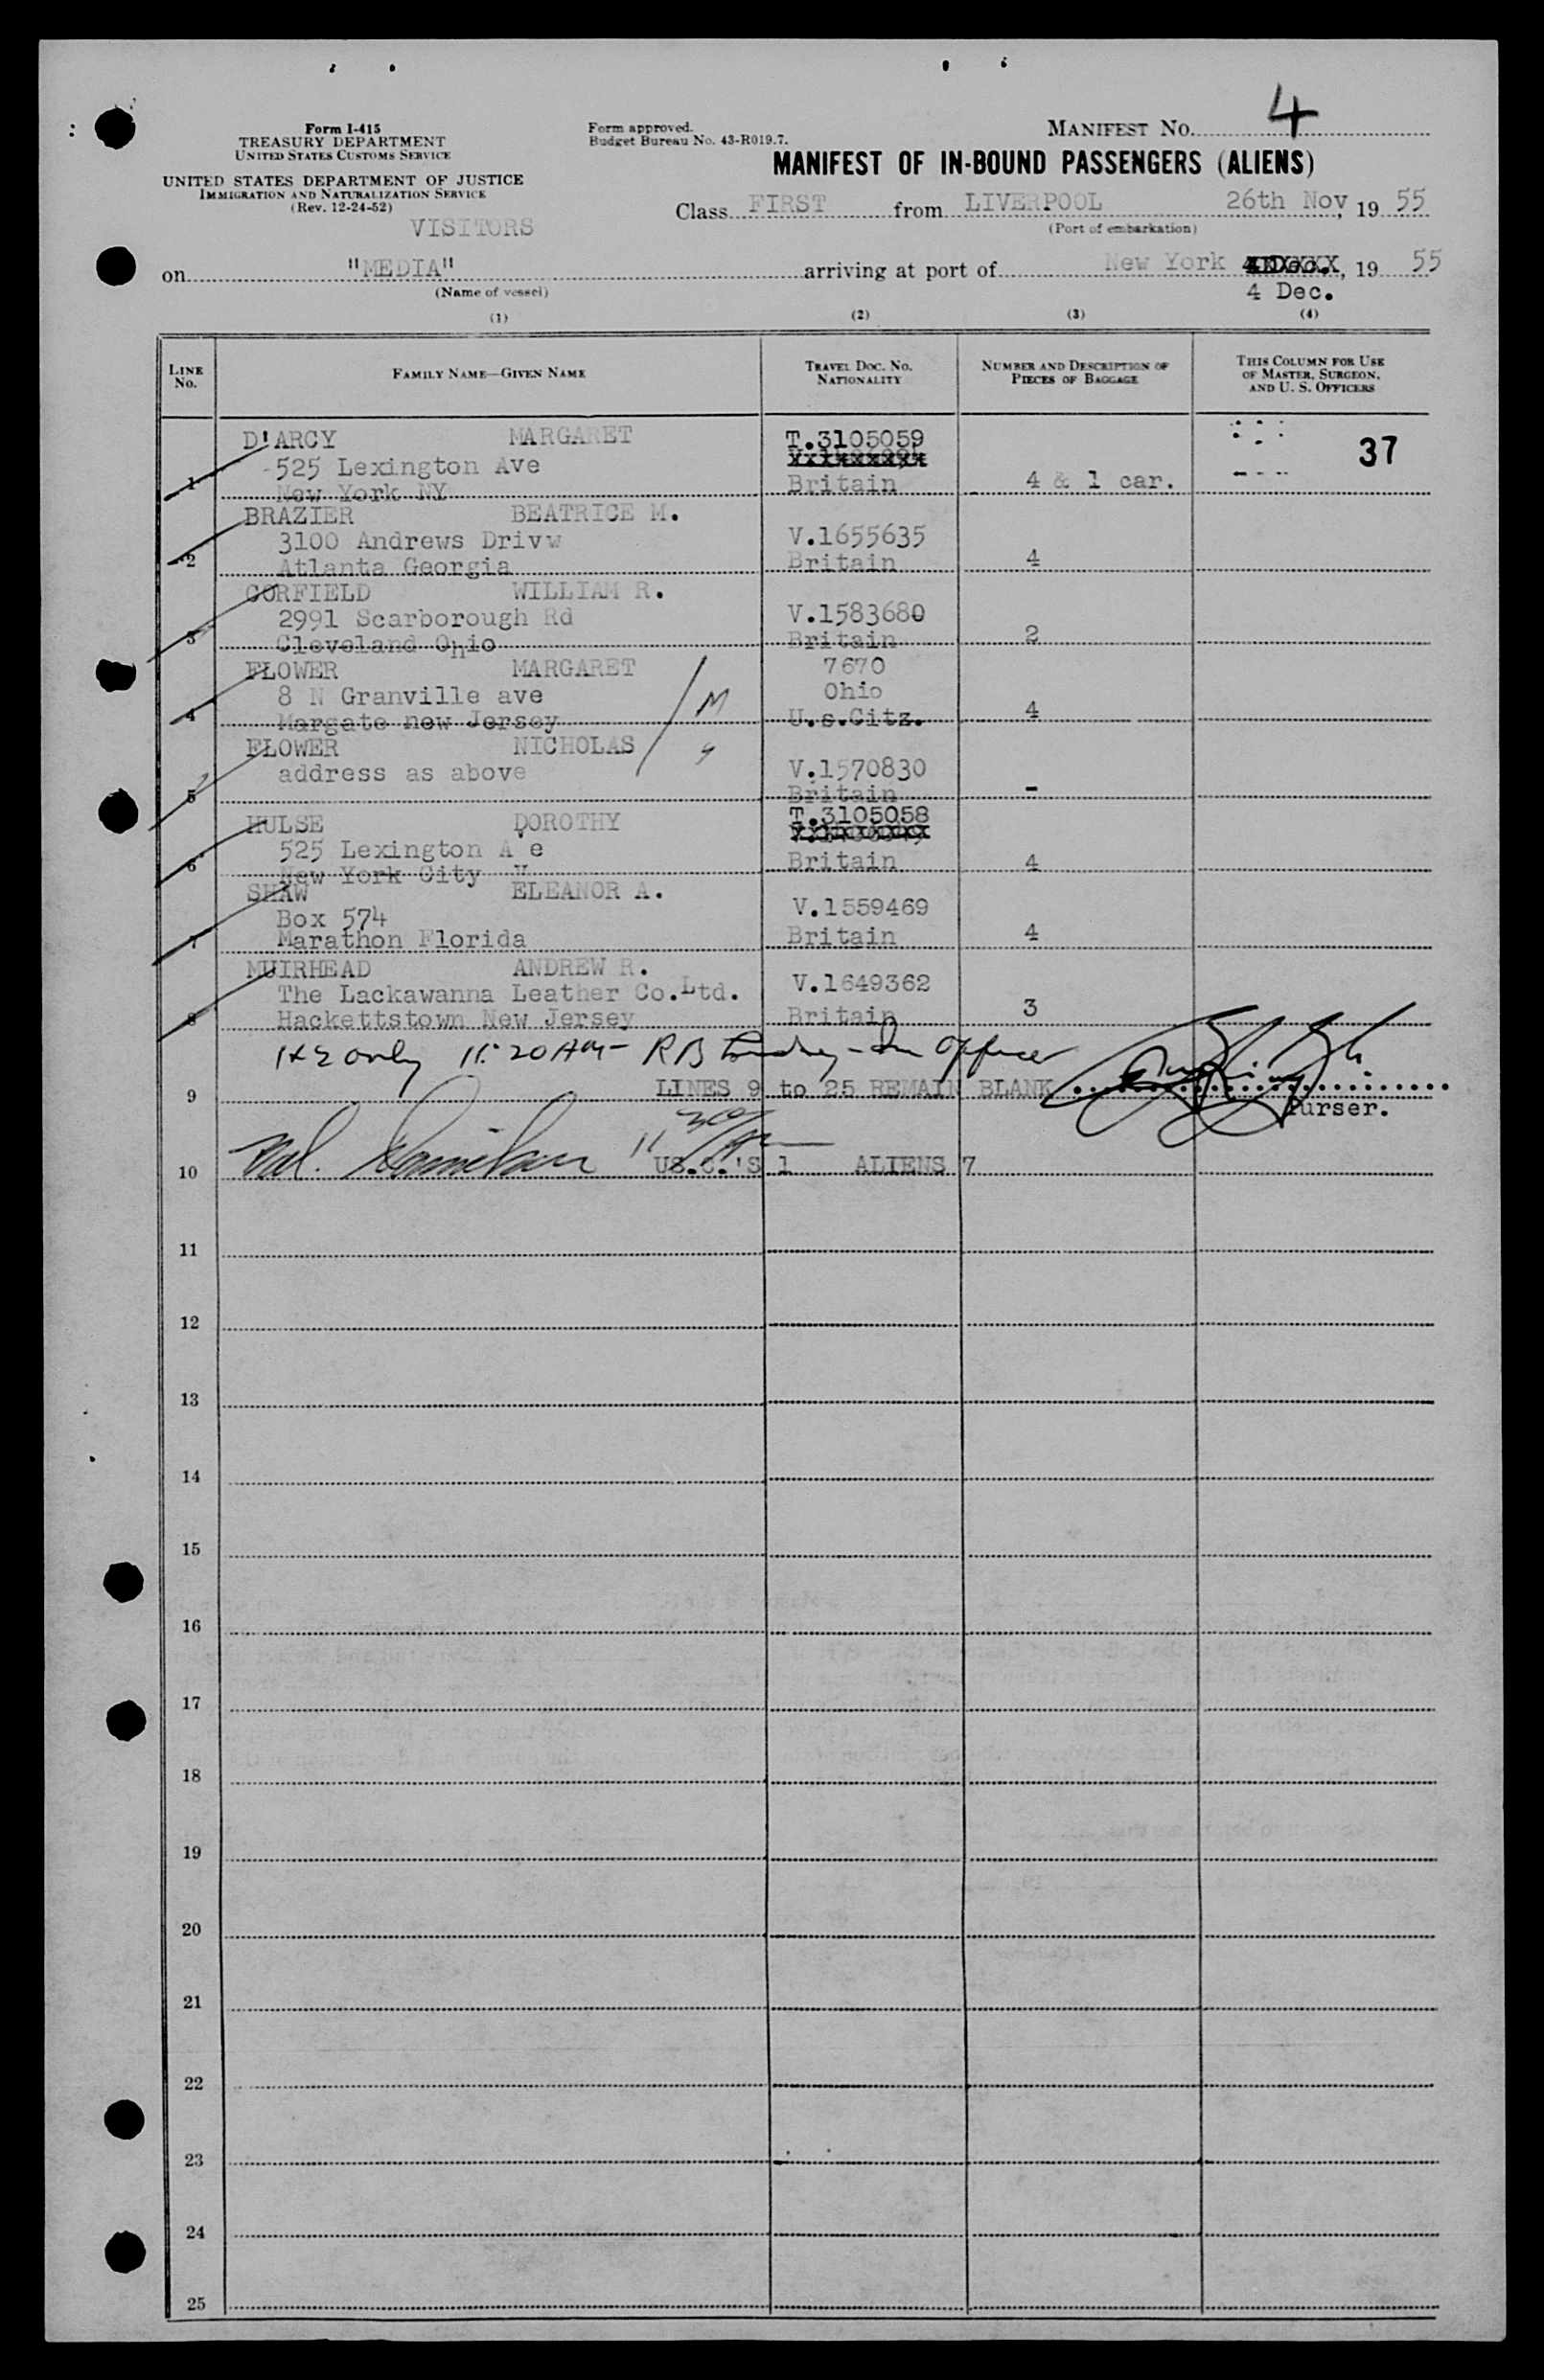 Form I-415
TREASURY DEPARTMENT
UNITED STATES CUSTOMS SERVICE
UNITED STATES DEPARTMENT OF JUSTICE
IMMIGRATION AND NATURALIZATION SERVICE
(Rev. 12-24-52)
VISITORS
Form approved.
Budget Bureau No. 43-R019.7.
MANIFEST NO. 4
MANIFEST OF IN-BOUND PASSENGERS (ALIENS)
Class FIRST from LIVERPOOL 26th Nov, 19 55
(Port of embarkation)
on "MEDIA" arriving at port of New York , 19 55
(Name of vessel) 4 Dec.
(1) (2) (3) (4)
LINE NO. FAMILY NAME—GIVEN NAME TRAVEL DOC. NO. NATIONALITY NUMBER AND DESCRIPTION OF PIECES OF BAGGAGE THIS COLUMN FOR USE OF MASTER, SURGEON, AND U. S. OFFICERS
D'ARCY MARGARET T.3105059 37
525 Lexington Ave
1 New York NY Britain 4 & 1 car.
BRAZIER BEATRICE M.
3100 Andrews Drivw V.1655635
2 Atlanta Georgia Britain 4
CORFIELD WILLIAM R.
2991 Scarborough Rd V.1583680
3 Cleveland Ohio Britain 2
FLOWER MARGARET 7670
8 N Granville ave M Ohio
4 Margate new Jersey U.s.Citz. 4
FLOWER NICHOLAS
address as above V.1570830
5 Britain -
HULSE DOROTHY T.3105058
525 Lexington Ave
6 New York City Britain 4
SHAW ELEANOR A.
Box 574 V.1559469
7 Marathon Florida Britain 4
MUIRHEAD ANDREW R.
The Lackawanna Leather Co.Ltd. V.1649362
8 Hackettstown New Jersey Britain 3
1+2 only 11:20 AM - R B Officer
9 LINES 9 to 25 REMAIN BLANK
Purser.
10 US.C.'S 1 ALIENS 7
11
12
13
14
15
16
17
18
19
20
21
22
23
24
25